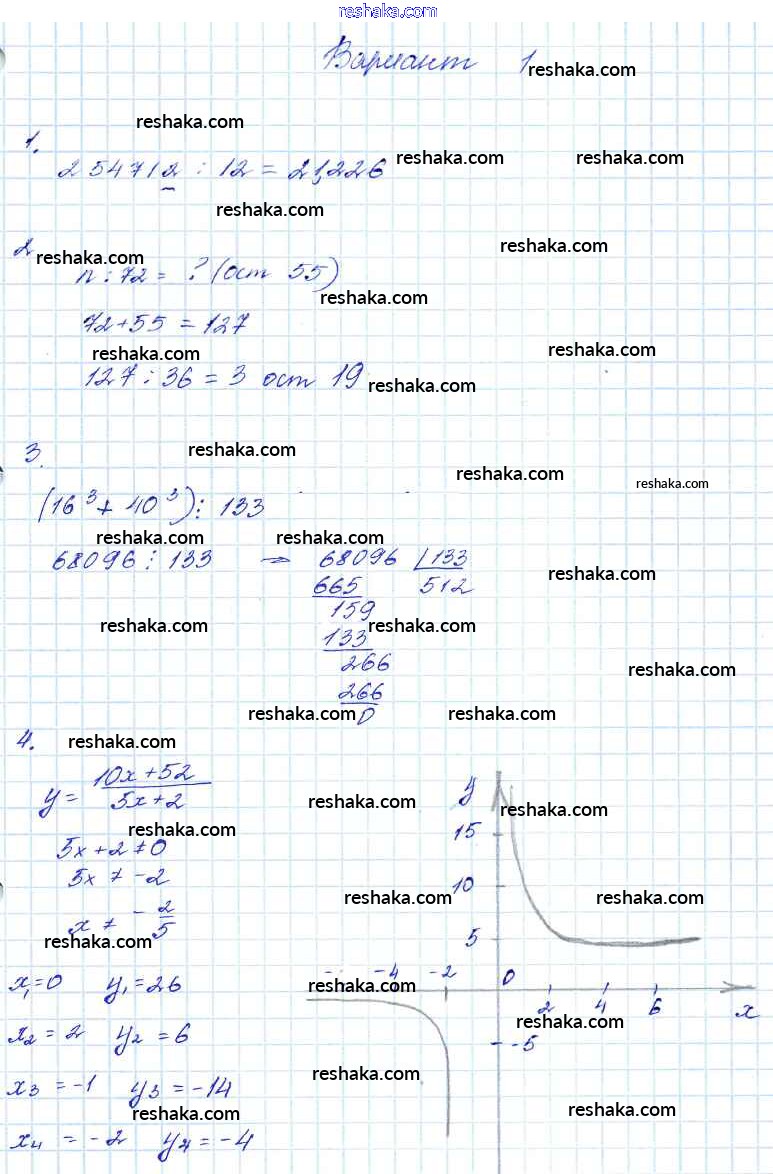 reshaka.com
Вариант 1
reshaka.com
reshaka.com
1.
reshaka.com reshaka.com
254712 : 12 = 21,226
reshaka.com
2
reshaka.com reshaka.com
n : 72 = ? (ост 55)
reshaka.com
72+55 = 127
reshaka.com reshaka.com
127 : 36 = 3 ост 19
reshaka.com
3.
reshaka.com
reshaka.com
reshaka.com
(16³ + 40³) : 133
reshaka.com reshaka.com
68096 : 133 => 68096 133
reshaka.com
665 512
159
reshaka.com reshaka.com
133
266
reshaka.com
266
reshaka.com reshaka.com
0
4.
reshaka.com
y = 10x+52
5x+2
reshaka.com
reshaka.com
reshaka.com
5x+2≠0
5x ≠ -2
reshaka.com reshaka.com
x ≠ - 2
5
reshaka.com
y
15
10
5
-4 -2 0
2 4 6 x
-5
reshaka.com
reshaka.com
x₁=0 y₁=26
x₂ = 2 y₂ = 6
reshaka.com
x₃ = -1 y₃ = -14
reshaka.com reshaka.com
x₄ = -2 y₄ = -4